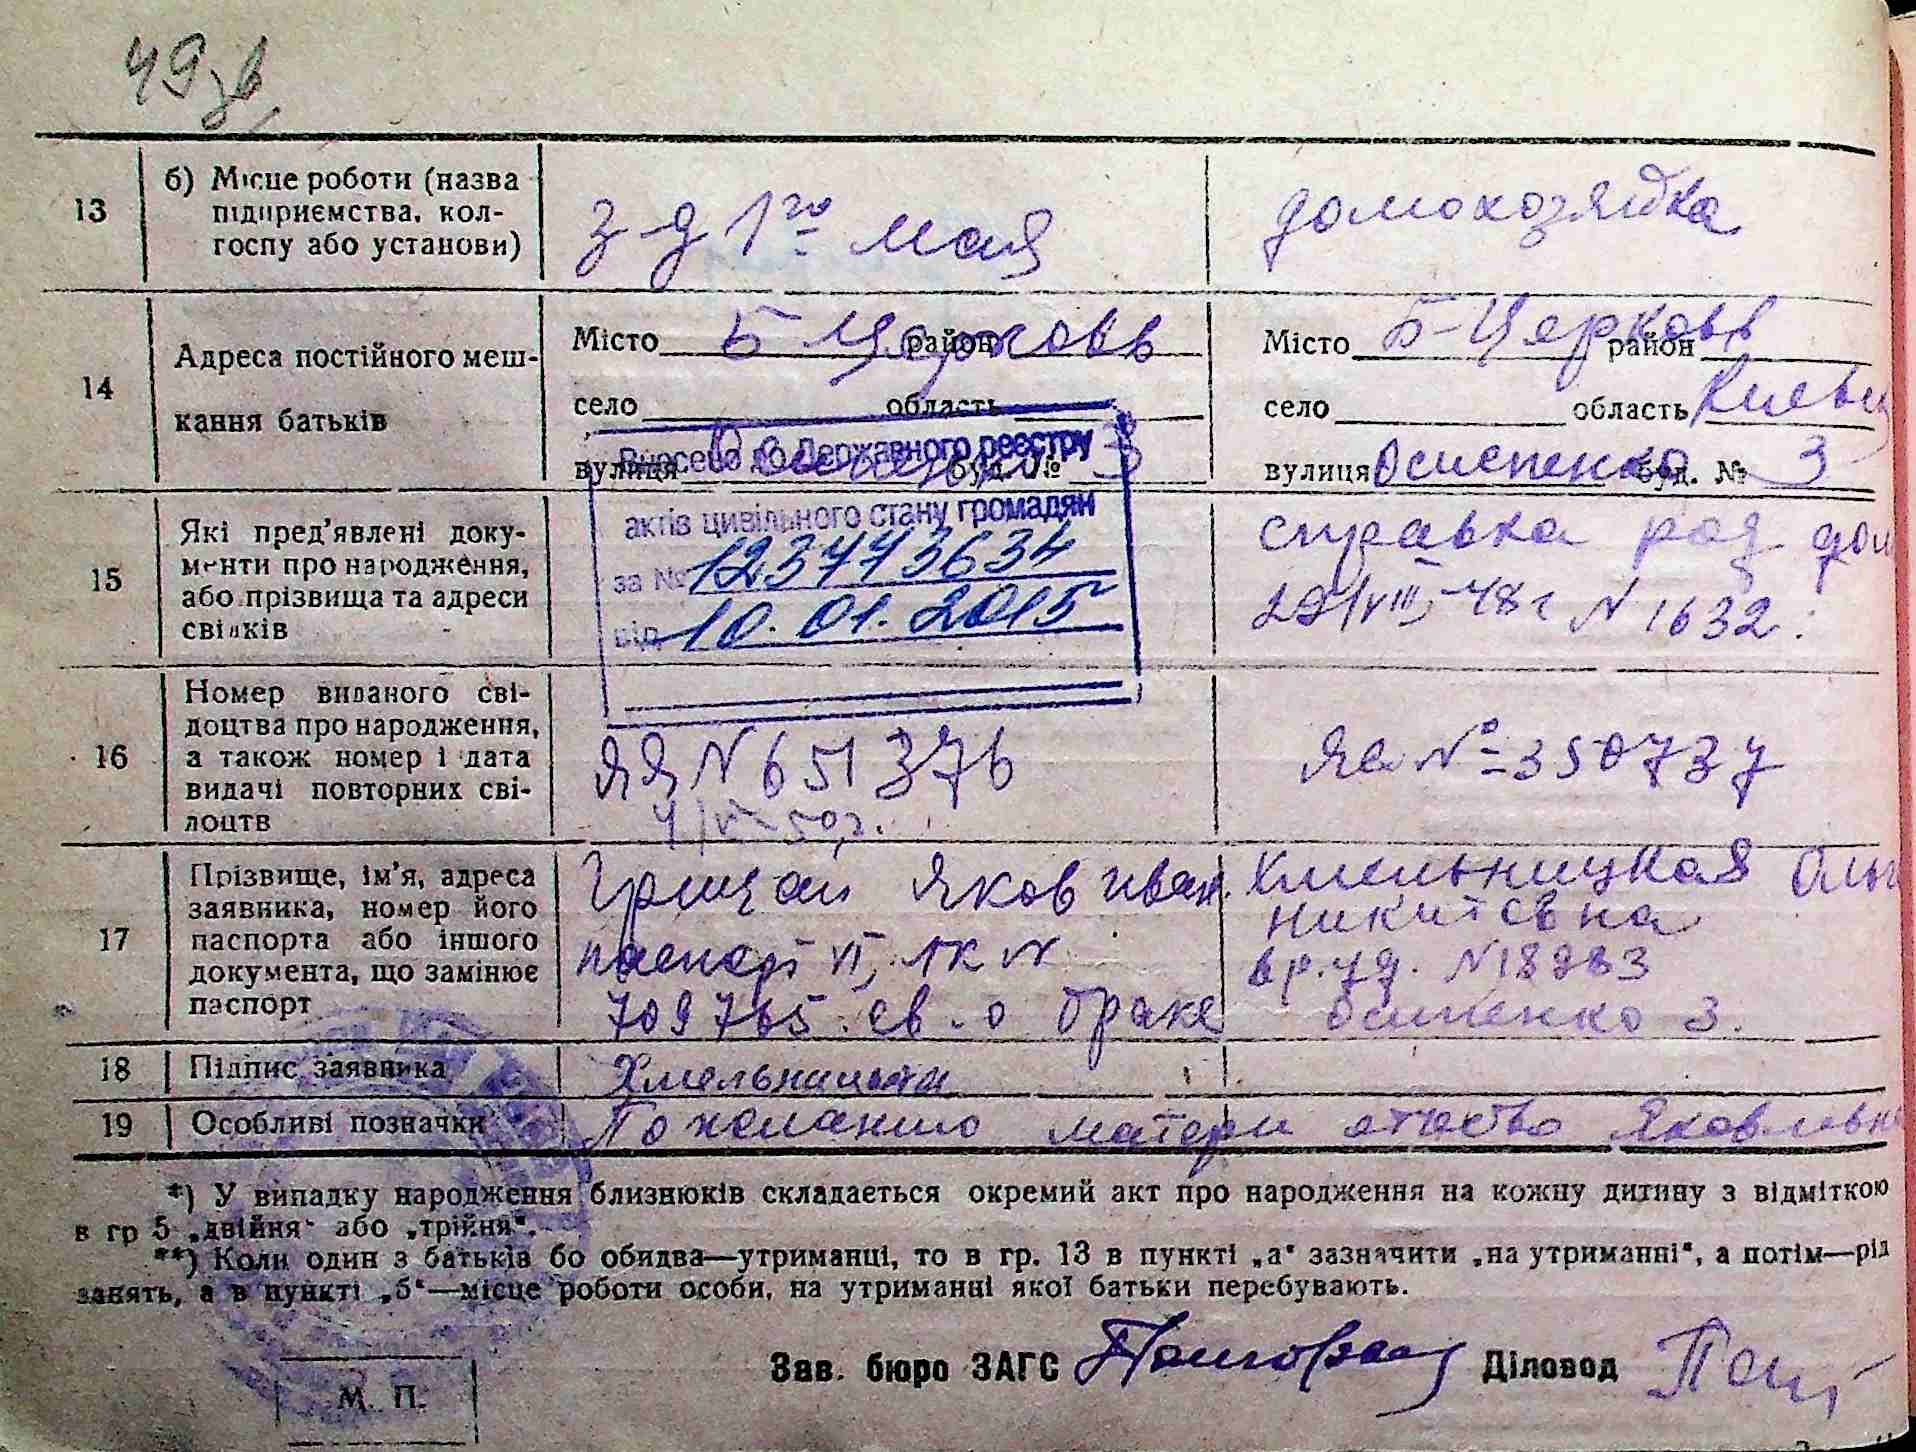 49зв
13
б) Місце роботи (назва
підприємства, кол-
госпу або установи)
з д 1го мая
домохозяйка
14
Адреса постійного меш-
кання батьків
Місто Б Церковь район
село область
вулиця буд. № 3
Місто Б-Церковь район
село область Киевц
вулиця Осипенко буд. № 3
Внесено до Державного реєстру
актів цивільного стану громадян
за № 123773634
від 10.01.2015
15
Які пред'явлені доку-
менти про народження,
або прізвища та адреси
свідків
справка род дом
29/VIII-48г N 1632.
16
Номер виданого сві-
доцтва про народження,
а також номер і дата
видачі повторних сві-
доцтв
ЯЯ N 651376
4/VI-50г.
№ 350737
17
Прізвище, ім'я, адреса
заявника, номер його
паспорта або іншого
документа, що замінює
паспорт
Грицай Яков Иван.
паспорт VI, ЛК N
709765. св. о браке
Хмельницкая Ольг
Никитовна
вр. уд. N 18983
Осипенко 3.
18
Підпис заявника
Хмельницкая
19
Особливі позначки
По желанию матери отчество Яковлевн
*) У випадку народження близнюків складається окремий акт про народження на кожну дитину з відміткою
в гр 5 „двійня“ або „трійня“.
**) Коли один з батьків бо обидва—утриманці, то в гр. 13 в пункті „а“ зазначити „на утриманні“, а потім—рід
занять, а в пункті „б“—місце роботи особи, на утриманні якої батьки перебувають.
Зав. бюро ЗАГС Діловод
М. П.